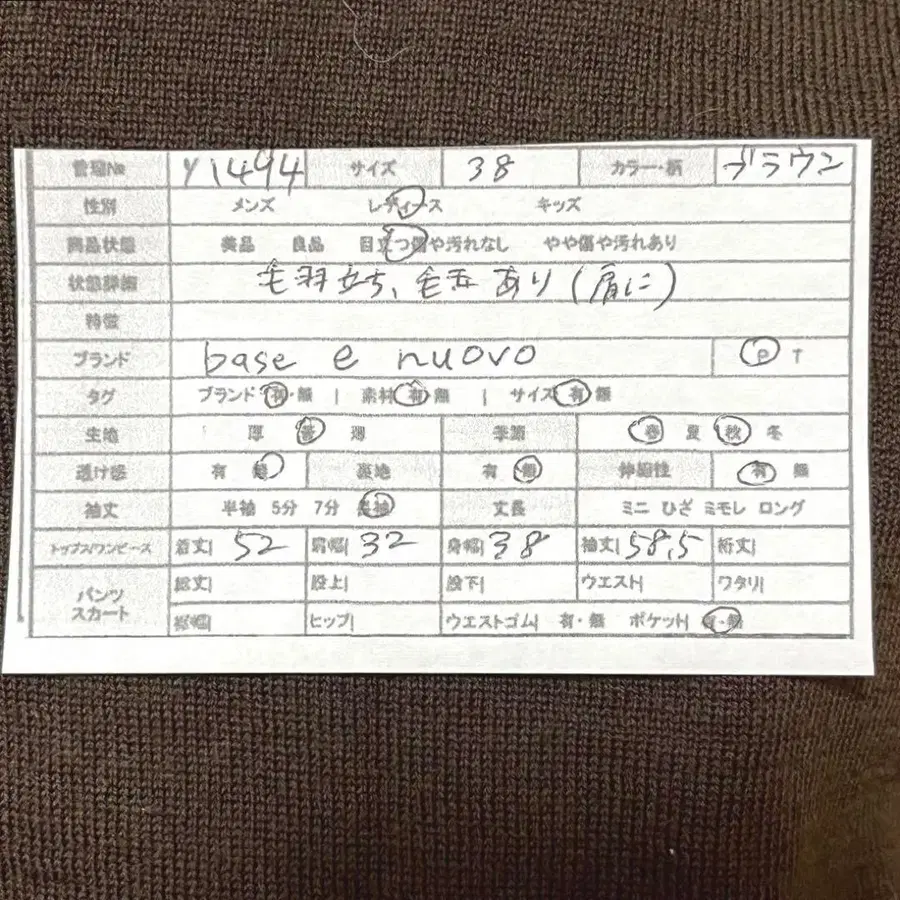 管理№ Y1494 サイズ 38 カラー・柄 ブラウン
性別 メンズ レディース キッズ
商品状態 美品 良品 目立つ傷や汚れなし やや傷や汚れあり
状態詳細 毛羽立ち、毛玉あり(肩に)
特徴
ブランド base e nuovo P T
タグ ブランド 有・無 | 素材 有・無 | サイズ 有・無
生地 厚 普 薄 季節 春 夏 秋 冬
透け感 有 無 裏地 有 無 伸縮性 有 無
袖丈 半袖 5分 7分 長袖 丈長 ミニ ひざ ミモレ ロング
トップス/ワンピース 着丈| 52 肩幅| 32 身幅| 38 袖丈| 58.5 裄丈|
パンツ スカート 総丈| 股上| 股下| ウエスト| ワタリ|
裾幅| ヒップ| ウエストゴム| 有・無 ポケット| 有・無